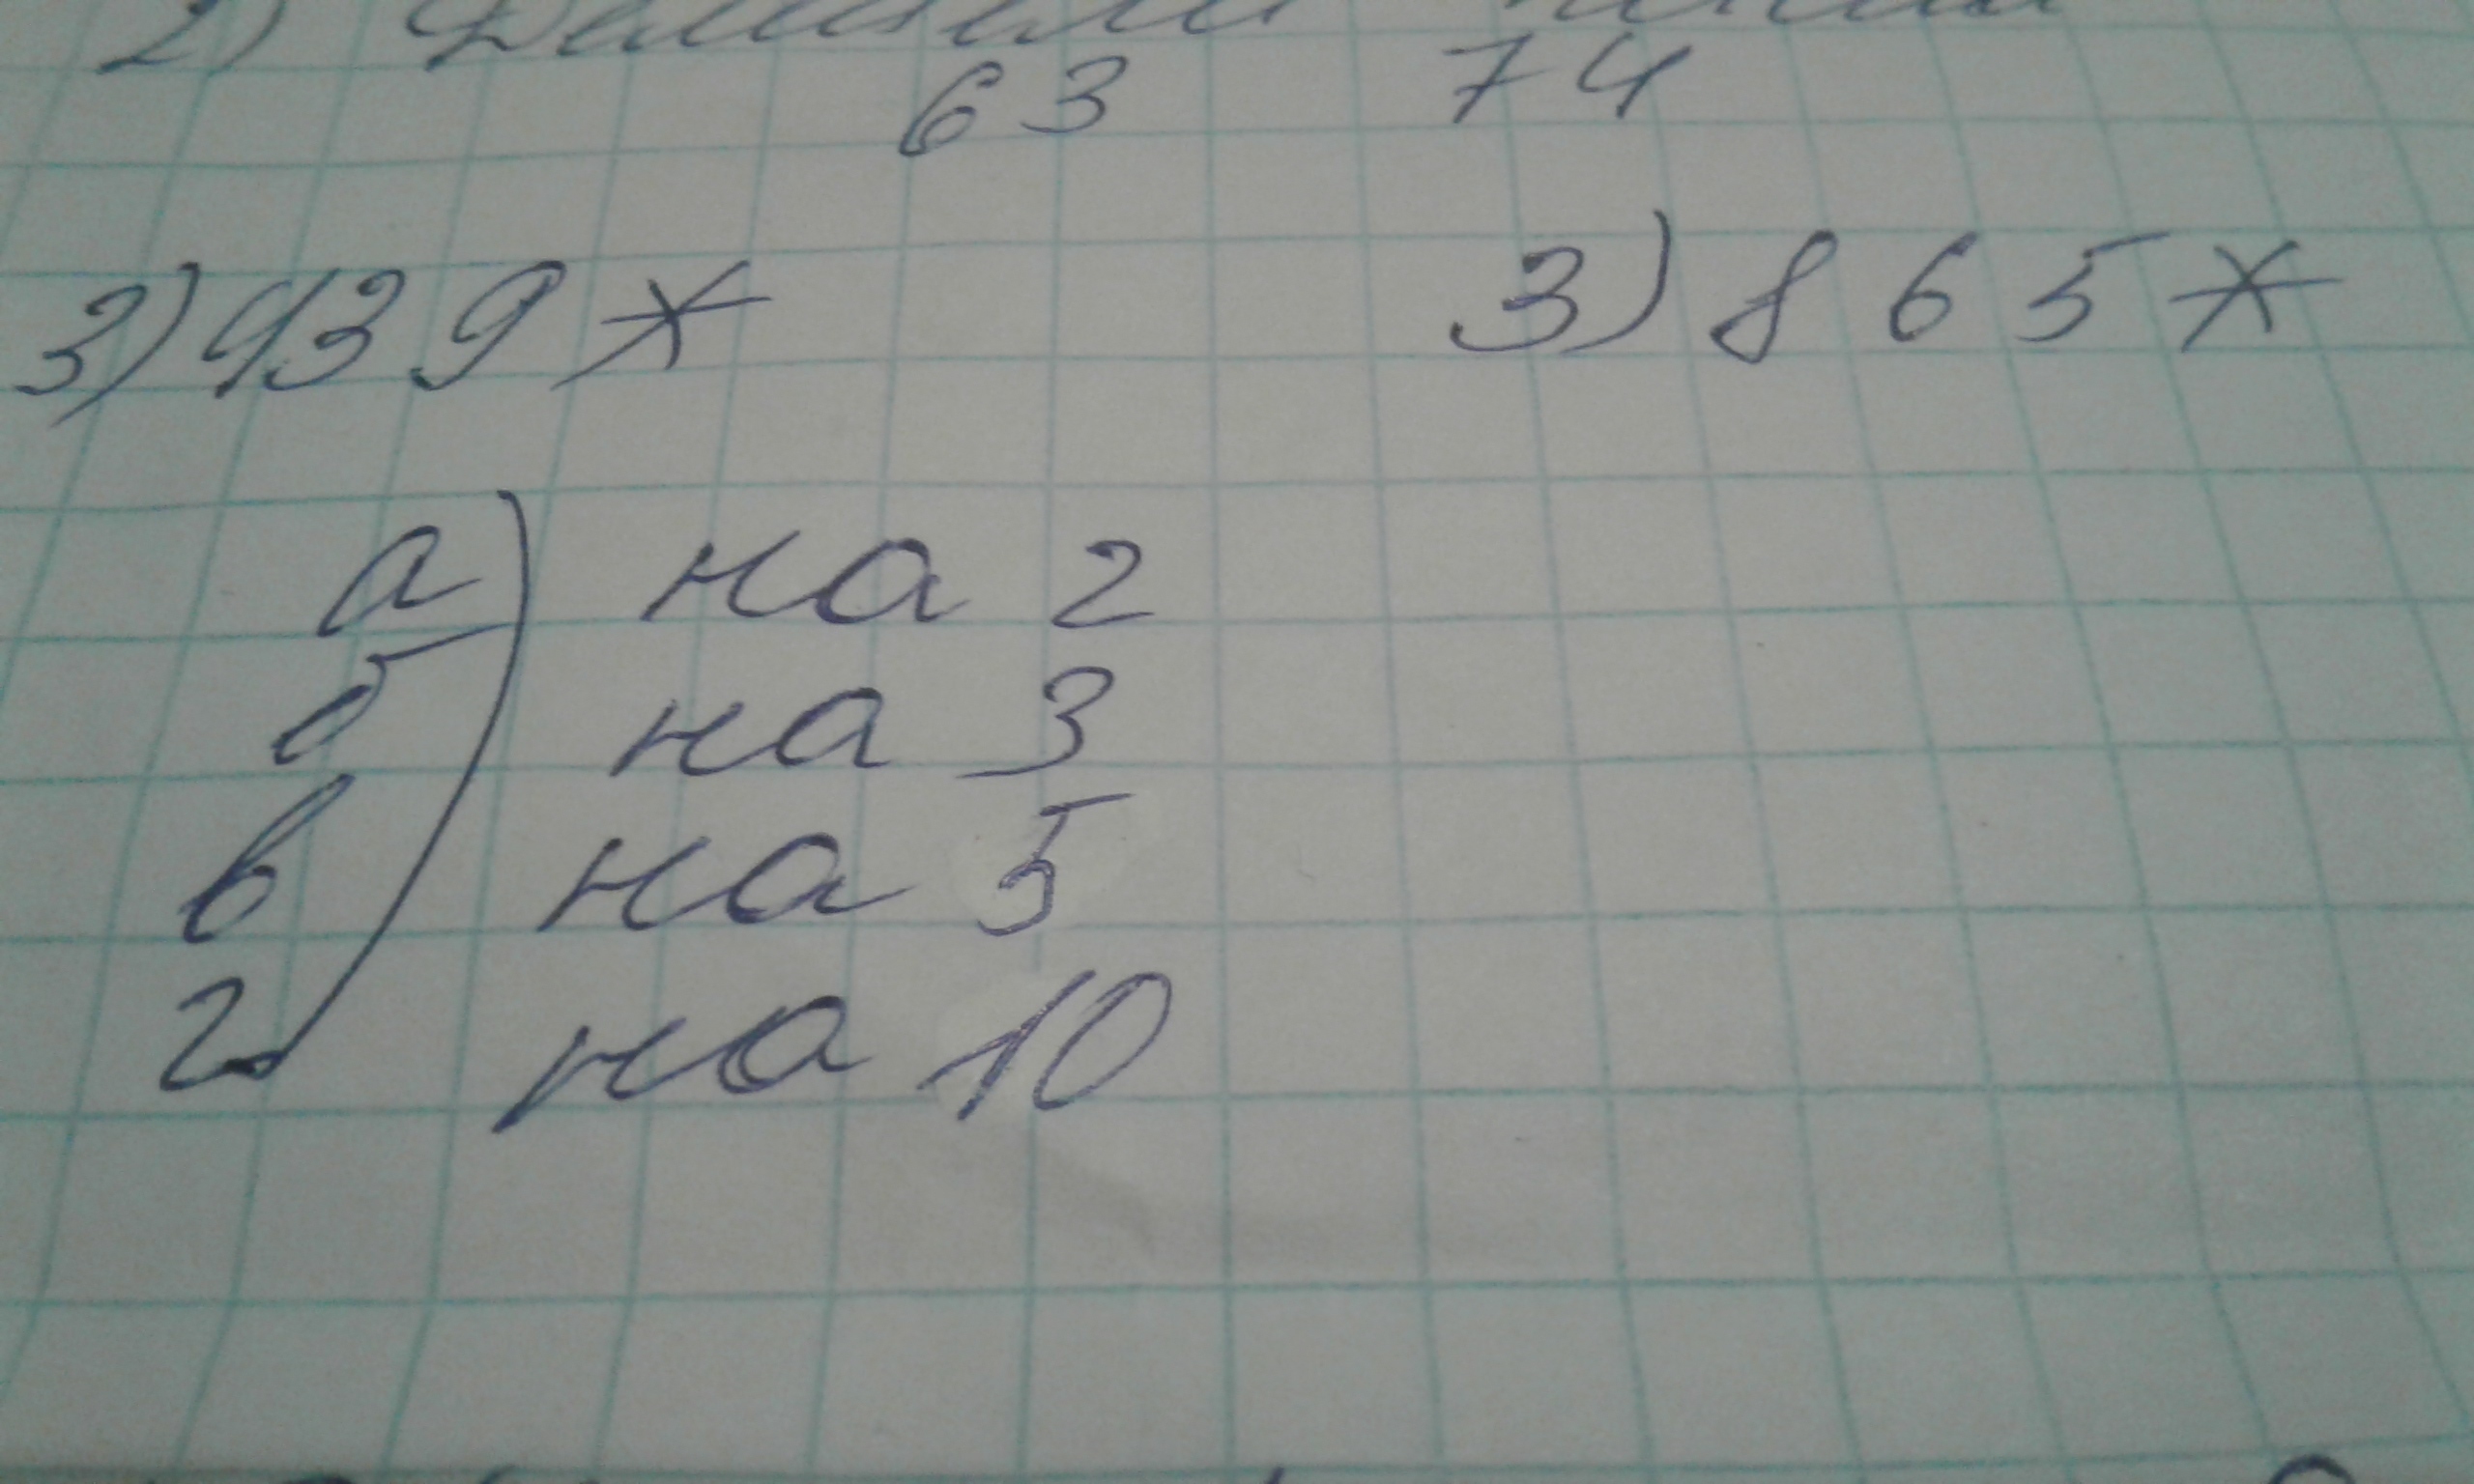 2) Делители числа
63 74
3) 439* 3) 865*
а) на 2
б на 3
в на 5
г на 10